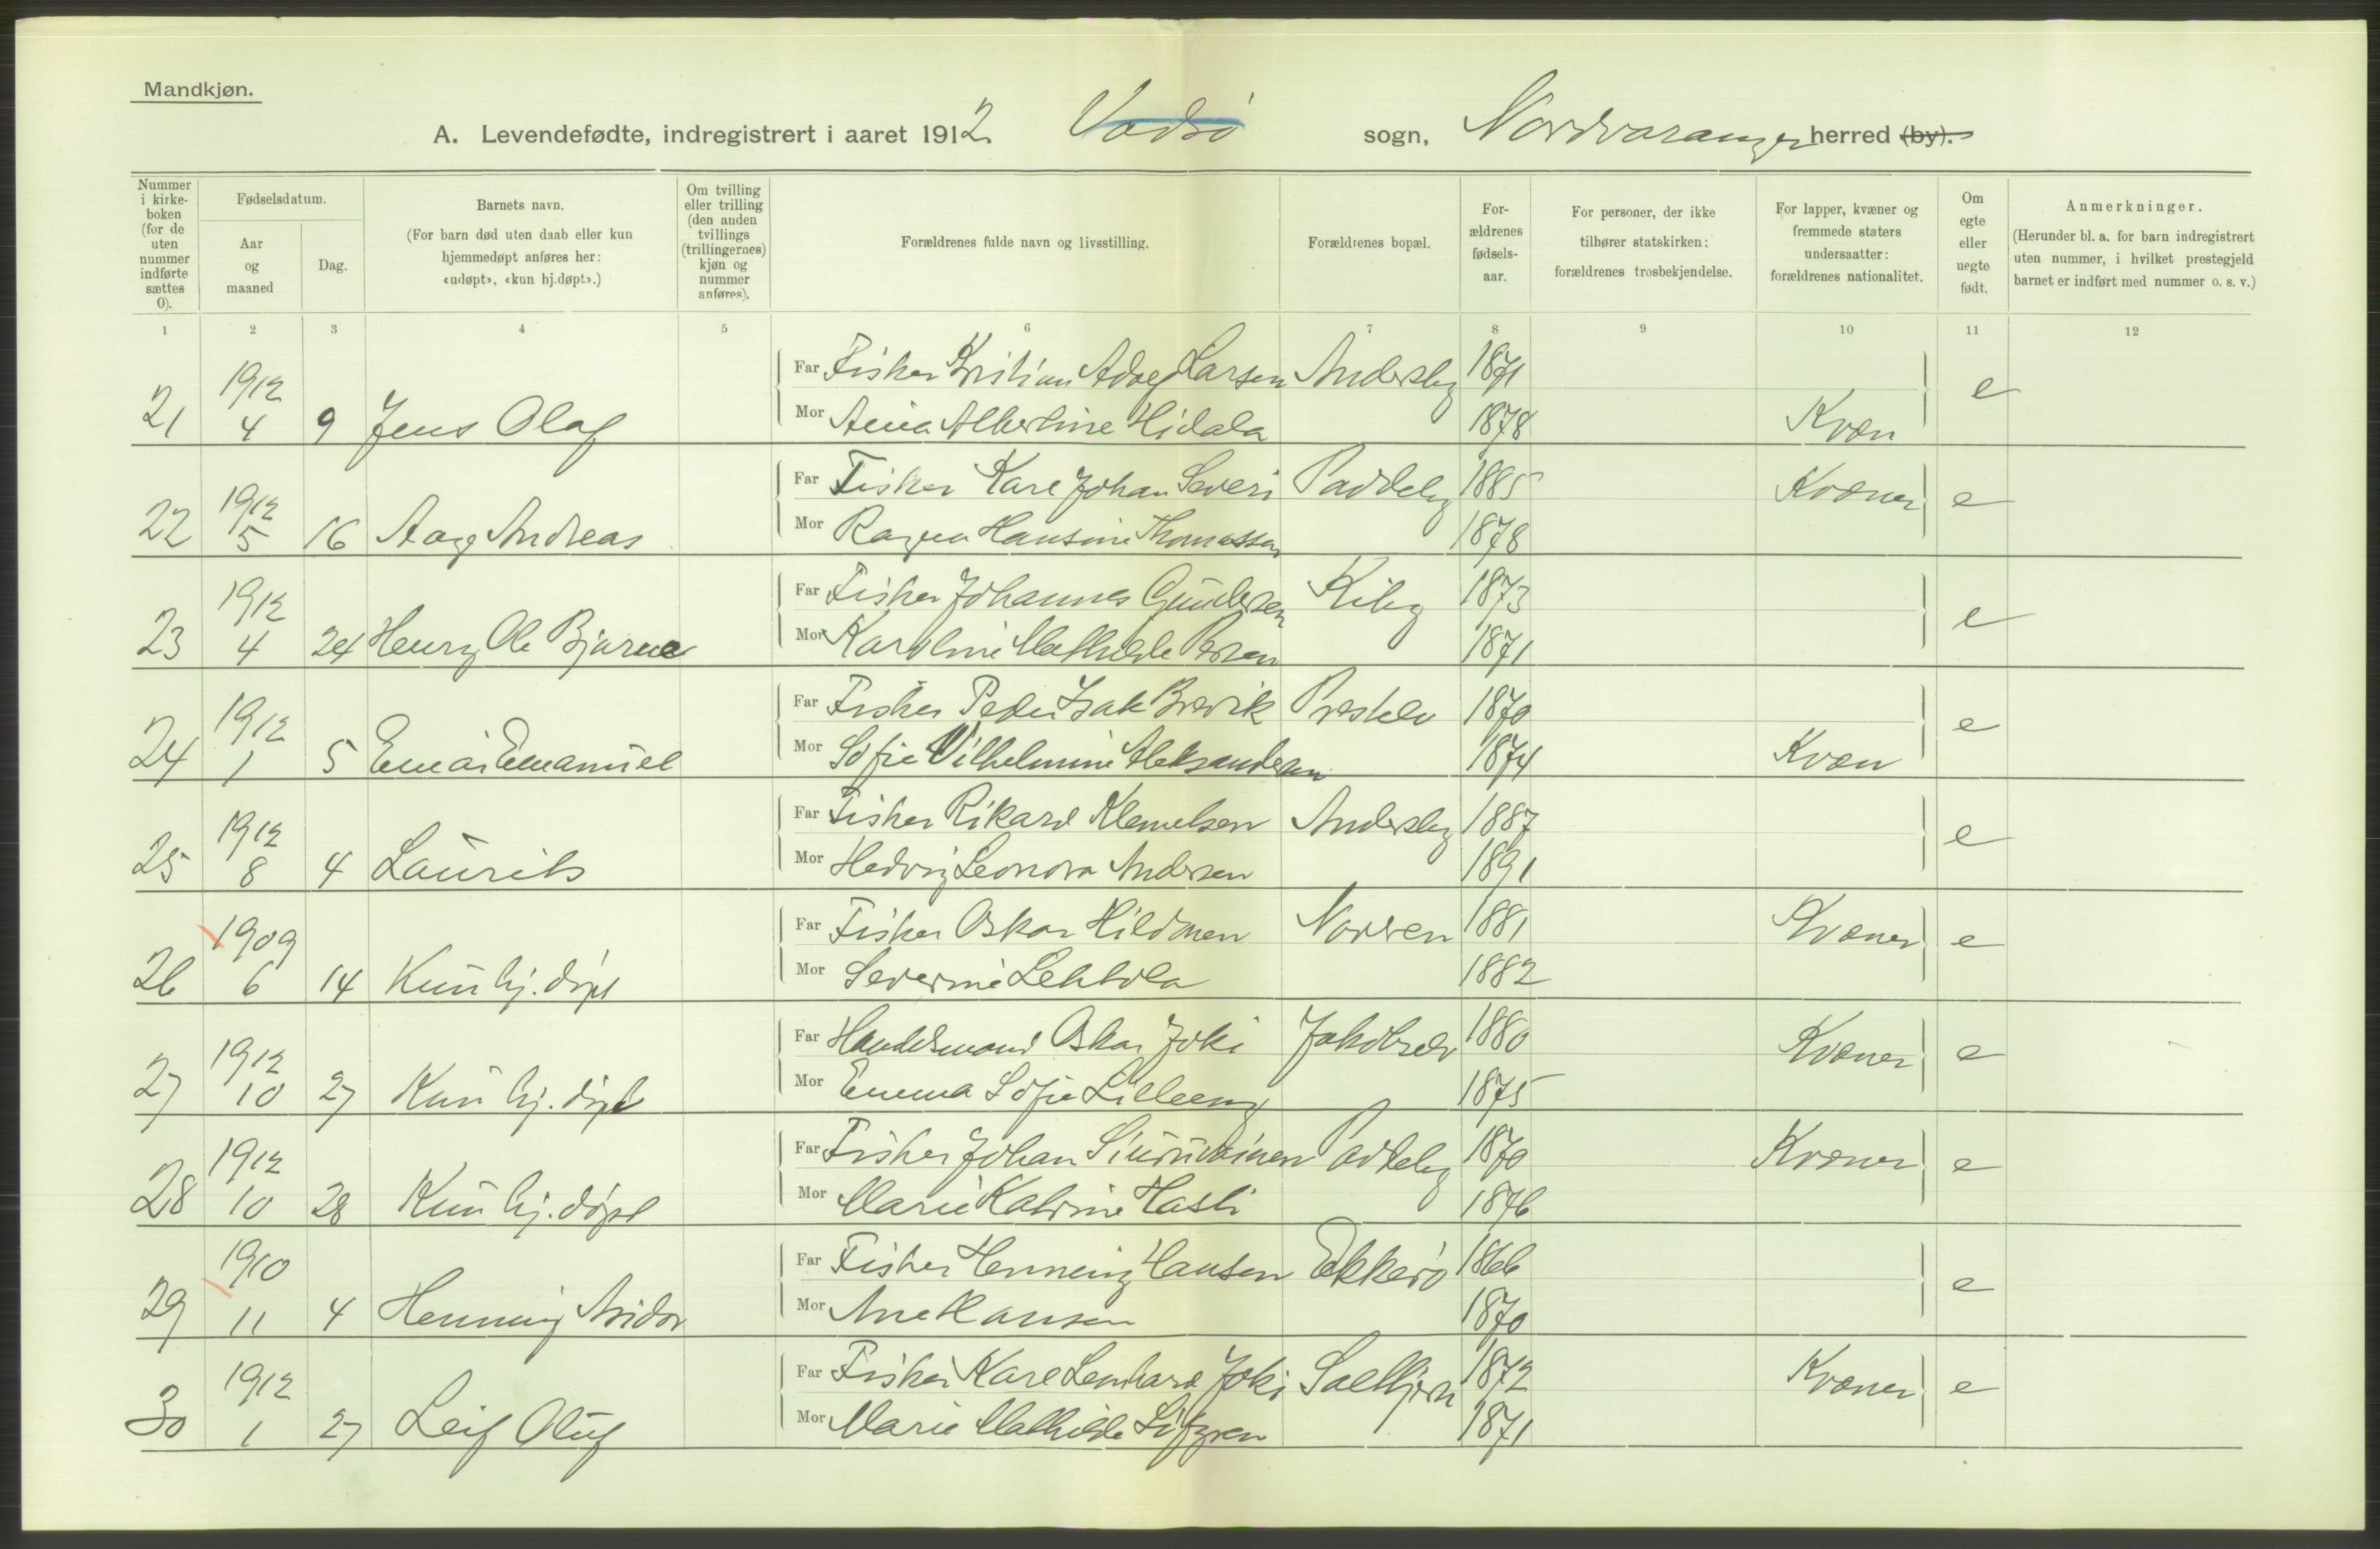 Mandkjøn.
A. Levendefødte, indregistrert i aaret 1912 Vadsö sogn, Nordvaranger herred (by).
Nummer i kirkeboken (for de uten nummer indførte sættes 0).
Fødselsdatum.
Aar og maaned
Dag.
Barnets navn.
(For barn død uten daab eller kun hjemmedøpt anføres her: «udøpt», «kun hj.døpt».)
Om tvilling eller trilling (den anden tvillings (trillingernes) kjøn og nummer anføres).
Forældrenes fulde navn og livsstilling.
Forældrenes bopæl.
Forældrenes fødselsaar.
For personer, der ikke tilhører statskirken: forældrenes trosbekjendelse.
For lapper, kvæner og fremmede staters undersaatter: forældrenes nationalitet.
Om egte eller uegte født.
Anmerkninger.
(Herunder bl. a. for barn indregistrert uten nummer, i hvilket prestegjeld barnet er indført med nummer o. s. v.)
1 2 3 4 5 6 7 8 9 10 11 12
1912 Far Fisker Kristian Larsen Andersby 1871 e
21 4 9 Jens Olaf Mor Albertine Hidala 1878 Kvæn
1912 Far Fisker Karl Johan Severi Paddeby 1885 Kvæner e
22 5 16 Aage Andreas Mor Ragna Hansine Thomassen 1878
1912 Far Fisker Johannes Gundersen Kiby 1873 e
23 4 24 Henry Ole Bjarne Mor Karoline Mathilde 1871
1912 Far Fisker Peder Isak Brevik Prestelv 1870 e
24 1 5 Einar Emanuel Mor Sofie Vilhelmine Aleksandersen 1874 Kvæn
1912 Far Fisker Rikard Klemetsen Andersby 1887 e
25 8 4 Laurits Mor Hedvig Leonora Andersen 1891
1909 Far Fisker Oskar Hildonen 1881 Kvæner e
26 6 14 Kun hj. döpt Mor Severine Lehtola 1882
1912 Far Handelsmand Oskar Joki Jakobselv 1880 Kvæner e
27 10 27 Kun hj. döpt Mor Emma Sofie Lilleeng 1875
1912 Far Fisker Johan Siuruvainen Paddeby 1870 Kvæner e
28 10 28 Kun hj. döpt Mor Marie Katrine 1876
1910 Far Fisker Henning Hansen Ekkerö 1866 e
29 11 4 Henning Aridor Mor Ane Hansen 1870
1912 Far Fisker Karl Lenhard Joki Saltkjern 1872 Kvæner e
30 1 27 Leif Oluf Mor Marie Mathilde Löfgren 1871